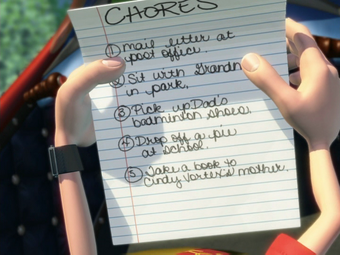 CHORES
① mail letter at
post office.
② Sit with Grandm
in park.
③ Pick up Dad's
badminton shoes.
④ Drop off a pie
at school.
⑤ Take a book to
Cindy Vortex's mother.